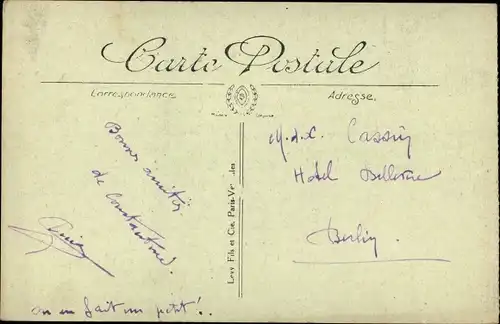 Carte Postale
Correspondance
Adresse
Bonnes amitiés
de Constantine.
on en fait un petit!..
Levy Fils et Cie, Paris-Ve les
Cassin
Hotel Bellevue
Berlin.